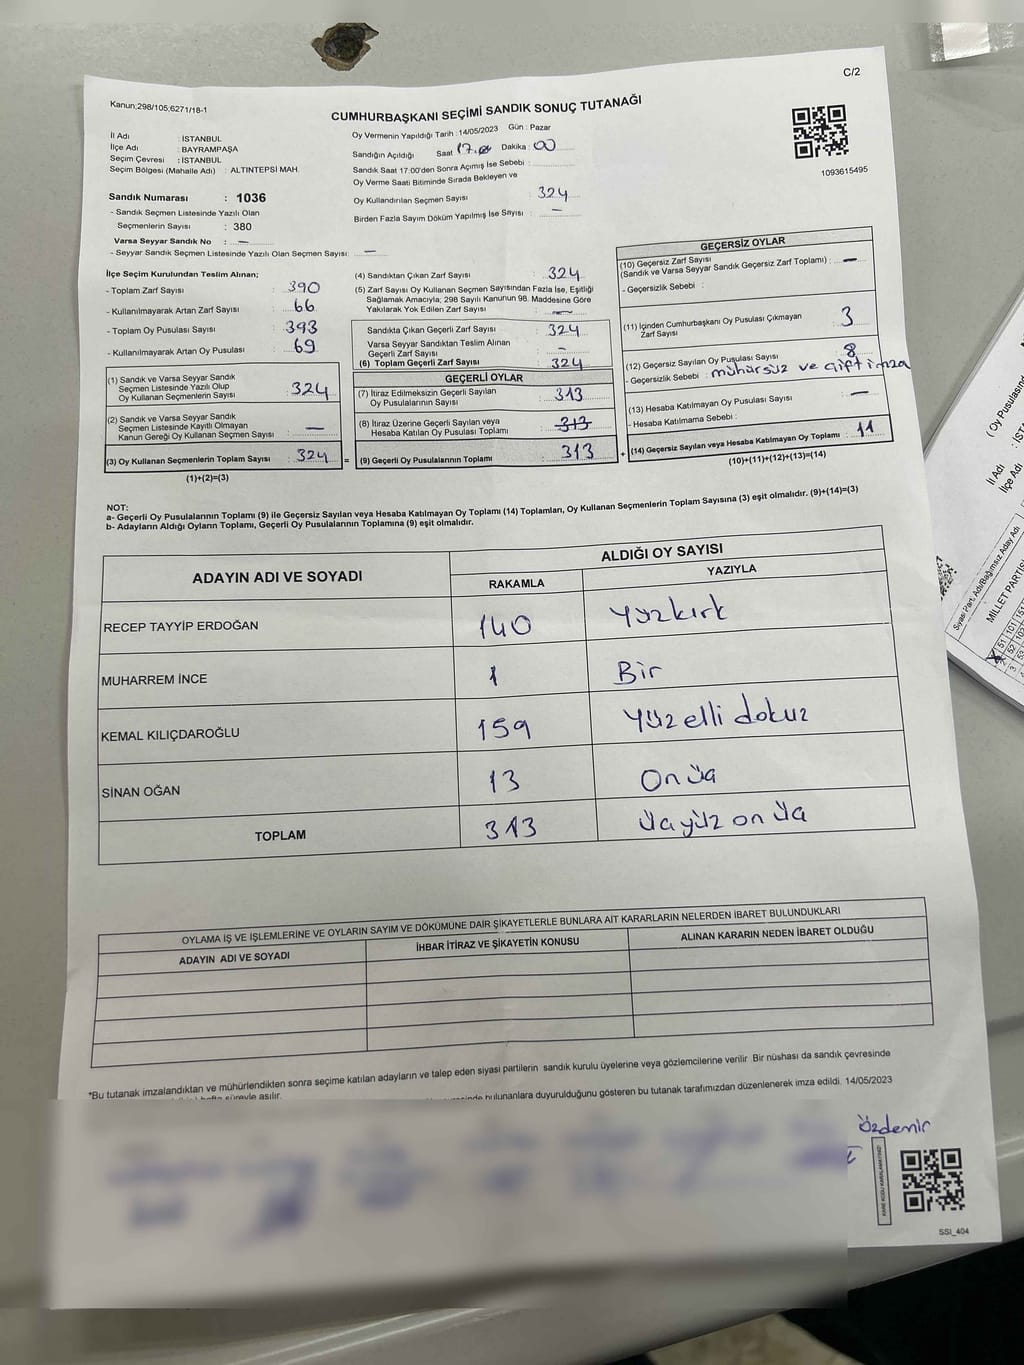 C/2
Kanun;298/105;6271/18-1
CUMHURBAŞKANI SEÇİMİ SANDIK SONUÇ TUTANAĞI
1093615495
İl Adı : İSTANBUL
İlçe Adı : BAYRAMPAŞA
Seçim Çevresi : İSTANBUL
Seçim Bölgesi (Mahalle Adı) : ALTINTEPSİ MAH.
Sandık Numarası : 1036
- Sandık Seçmen Listesinde Yazılı Olan
Seçmenlerin Sayısı : 380
Varsa Seyyar Sandık No : —
- Seyyar Sandık Seçmen Listesinde Yazılı Olan Seçmen Sayısı: —
Oy Vermenin Yapıldığı Tarih : 14/05/2023 Gün : Pazar
Sandığın Açıldığı Saat 17. Dakika : 00
Sandık Saat 17.00'den Sonra Açımış İse Sebebi :
Oy Verme Saati Bitiminde Sırada Bekleyen ve
Oy Kullandırılan Seçmen Sayısı : 324
Birden Fazla Sayım Döküm Yapılmış İse Sayısı : —
İlçe Seçim Kurulundan Teslim Alınan;
- Toplam Zarf Sayısı : 390
- Kullanılmayarak Artan Zarf Sayısı : 66
- Toplam Oy Pusulası Sayısı : 393
- Kullanılmayarak Artan Oy Pusulası : 69
(1) Sandık ve Varsa Seyyar Sandık
Seçmen Listesinde Yazılı Olup
Oy Kullanan Seçmenlerin Sayısı : 324
(2) Sandık ve Varsa Seyyar Sandık
Seçmen Listesinde Kayıtlı Olmayan
Kanun Gereği Oy Kullanan Seçmen Sayısı : —
(3) Oy Kullanan Seçmenlerin Toplam Sayısı : 324 =
(1)+(2)=(3)
(4) Sandıktan Çıkan Zarf Sayısı : 324
(5) Zarf Sayısı Oy Kullanan Seçmen Sayısından Fazla İse, Eşitliği
Sağlamak Amacıyla; 298 Sayılı Kanunun 98. Maddesine Göre
Yakılarak Yok Edilen Zarf Sayısı : —
Sandıkta Çıkan Geçerli Zarf Sayısı : 324
Varsa Seyyar Sandıktan Teslim Alınan
Geçerli Zarf Sayısı : -
(6) Toplam Geçerli Zarf Sayısı : 324
GEÇERLİ OYLAR
(7) İtiraz Edilmeksizin Geçerli Sayılan
Oy Pusulalarının Sayısı : 313
(8) İtiraz Üzerine Geçerli Sayılan veya
Hesaba Katılan Oy Pusulası Toplamı : 313
(9) Geçerli Oy Pusulalarının Toplamı : 313 +
GEÇERSİZ OYLAR
(10) Geçersiz Zarf Sayısı
(Sandık ve Varsa Seyyar Sandık Geçersiz Zarf Toplamı) : —
- Geçersizlik Sebebi :
(11) İçinden Cumhurbaşkanı Oy Pusulası Çıkmayan
Zarf Sayısı : 3
(12) Geçersiz Sayılan Oy Pusulası Sayısı : 8
- Geçersizlik Sebebi : mühürsüz ve çift imza
(13) Hesaba Katılmayan Oy Pusulası Sayısı : —
- Hesaba Katılmama Sebebi :
(14) Geçersiz Sayılan veya Hesaba Katılmayan Oy Toplamı : 11
(10)+(11)+(12)+(13)=(14)
NOT:
a- Geçerli Oy Pusulalarının Toplamı (9) ile Geçersiz Sayılan veya Hesaba Katılmayan Oy Toplamı (14) Toplamları, Oy Kullanan Seçmenlerin Toplam Sayısına (3) eşit olmalıdır. (9)+(14)=(3)
b- Adayların Aldığı Oyların Toplamı, Geçerli Oy Pusulalarının Toplamına (9) eşit olmalıdır.
ADAYIN ADI VE SOYADI ALDIĞI OY SAYISI
RAKAMLA YAZIYLA
RECEP TAYYİP ERDOĞAN 140 Yüzkırk
MUHARREM İNCE 1 Bir
KEMAL KILIÇDAROĞLU 159 Yüz elli dokuz
SİNAN OĞAN 13 On üç
TOPLAM 313 üç yüz on üç
OYLAMA İŞ VE İŞLEMLERİNE VE OYLARIN SAYIM VE DÖKÜMÜNE DAİR ŞİKAYETLERLE BUNLARA AİT KARARLARIN NELERDEN İBARET BULUNDUKLARI
ADAYIN ADI VE SOYADI İHBAR İTİRAZ VE ŞİKAYETİN KONUSU ALINAN KARARIN NEDEN İBARET OLDUĞU
*Bu tutanak imzalandıktan ve mühürlendikten sonra seçime katılan adayların ve talep eden siyasi partilerin sandık kurulu üyelerine veya gözlemcilerine verilir Bir nüshası da sandık çevresinde
hafta süreyle asılır.
bulunanlara duyurulduğunu gösteren bu tutanak tarafımızdan düzenlenerek imza edildi. 14/05/2023
Özdemir
SSI_404
(Oy Pusulasında
İl Adı : İST
İlçe Adı
Siyasi Parti Adı/Bağımsız Aday Adı
MİLLET PARTİSİ